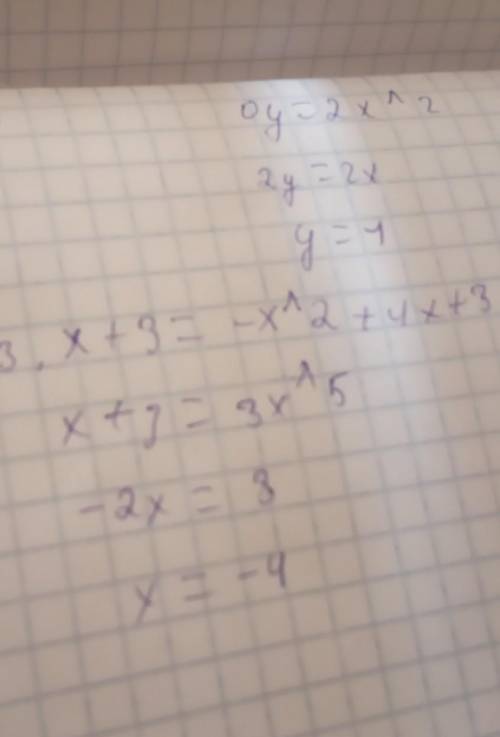 0y=2x^2
2y=2x
y=1
3. x+3=-x^2+4x+3
x+3=3x^5
-2x=8
x=-4